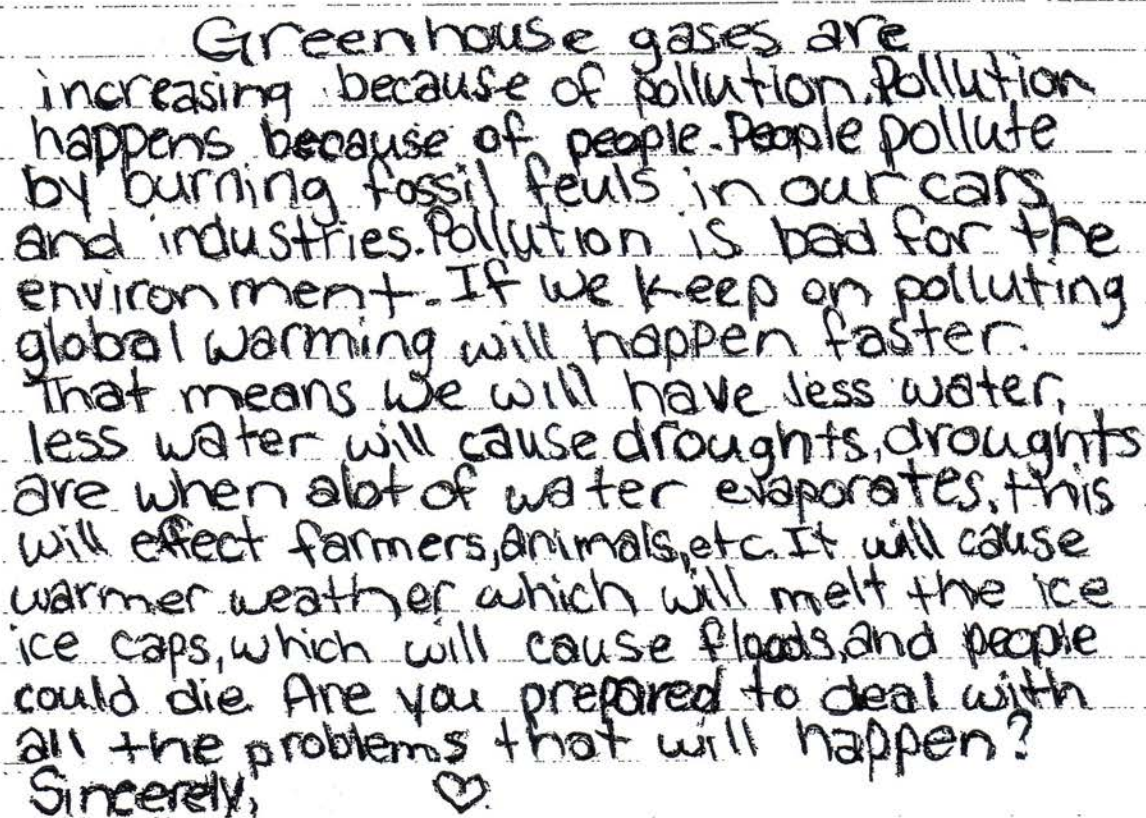 Greenhouse gases are
increasing because of pollution. Pollution
happens because of people. People pollute
by burning fossil feuls in our cars
and industries. Pollution is bad for the
environment. If we keep on polluting
global warming will happen faster.
That means we will have less water,
less water will cause droughts, droughts
are when alot of water evaporates, this
will effect farmers, animals, etc. It will cause
warmer weather which will melt the ice
ice caps, which will cause floods, and people
could die. Are you prepared to deal with
all the problems that will happen?
Sincerely, ♡